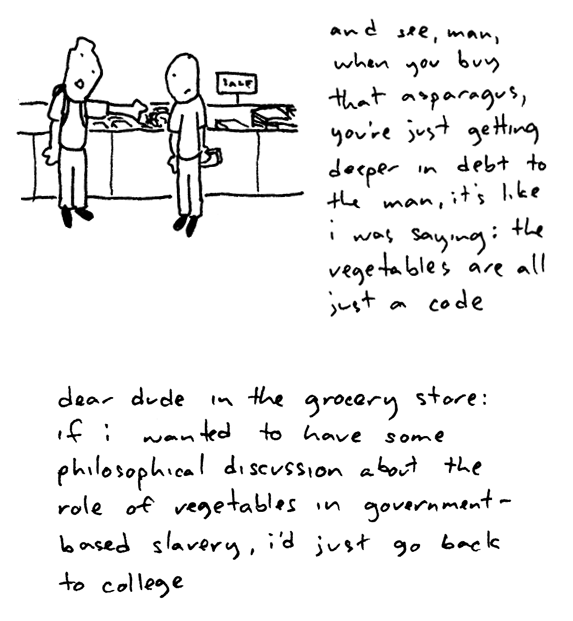 SALE
and see, man,
when you buy
that asparagus,
you're just getting
deeper in debt to
the man, it's like
i was saying: the
vegetables are all
just a code
dear dude in the grocery store:
if i wanted to have some
philosophical discussion about the
role of vegetables in government-
based slavery, i'd just go back
to college